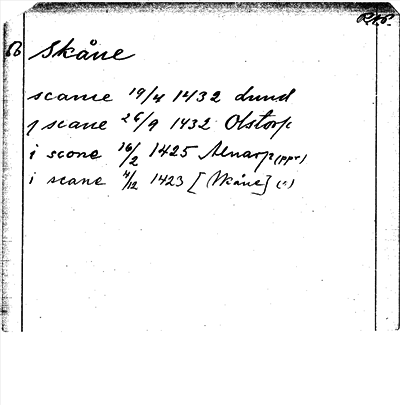 Skåne
scanie 19/4 1432 Lund
j scane 26/9 1432 Olstorp
i scone 16/2 1425 Alnarp (ppr)
i scane 4/12 1423 [Skåne] (c)